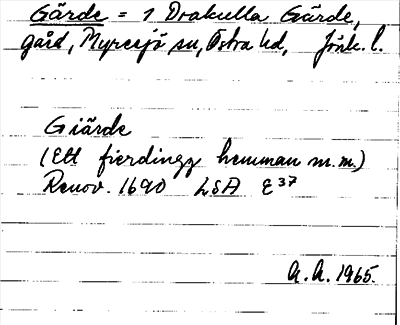 Gärde = 1 Drakulla Gärde,
gård, Myresjö sn, Östra hd, Jönk. l.
Giärde
(Ett fierdingz hemman m.m.)
Renov. 1690 LSA E37
A.A. 1965.